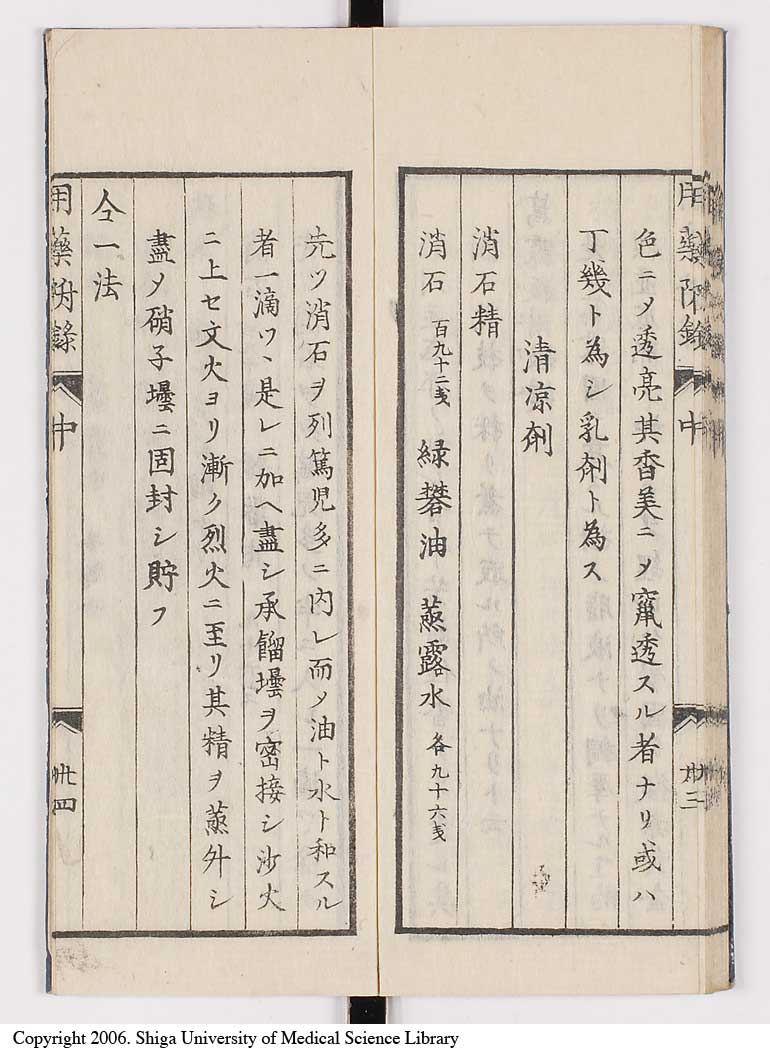 用藥附録 中 卅三
色ニメ透亮其香美ニメ竄透スル者ナリ或ハ
丁幾ト為シ乳剤ト為ス
清凉剤
消石精
消石 百九十二戔 緑礬油 蒸露水 各九十六戔
先ツ消石ヲ列篤児多ニ内レ而メ油ト水ト和スル
者一滴ツヽ是レニ加ヘ盡シ承餾壜ヲ密接シ沙火
ニ上セ文火ヨリ漸ク烈火ニ至リ其精ヲ蒸外シ
盡メ硝子壜ニ固封シ貯フ
仝一法
用藥附録 中 卅四
Copyright 2006. Shiga University of Medical Science Library